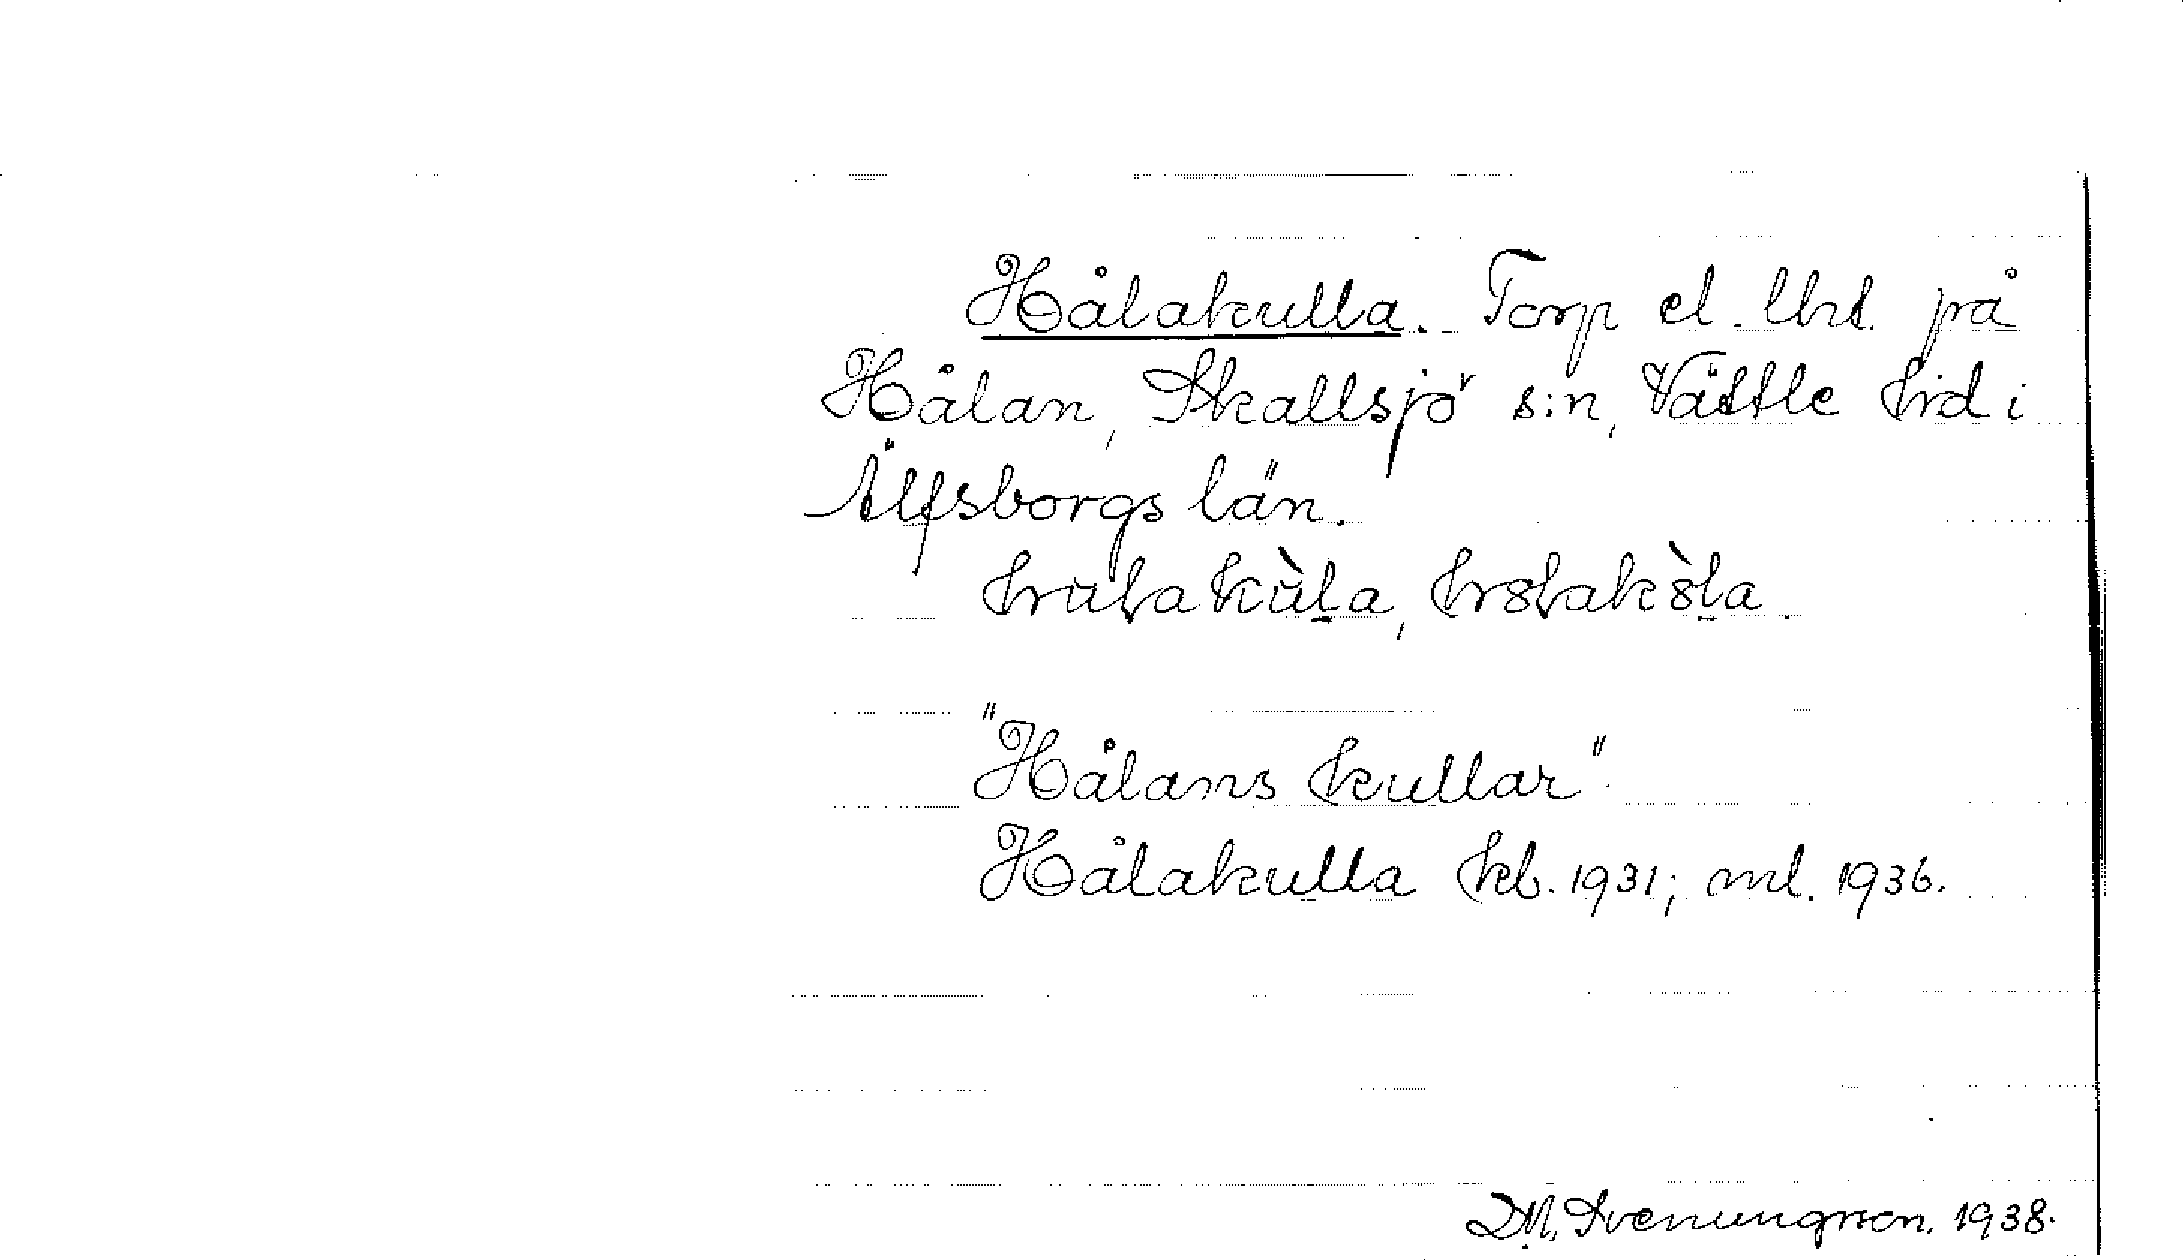 Hålakulla. Torp el. lht. på
Hålan, Skallsjö s:n, Vättle hrd i
Älfsborgs län.
"Hålans kullar".
Hålakulla kb. 1931; ml. 1936.
D.M. Svenungsson. 1938.